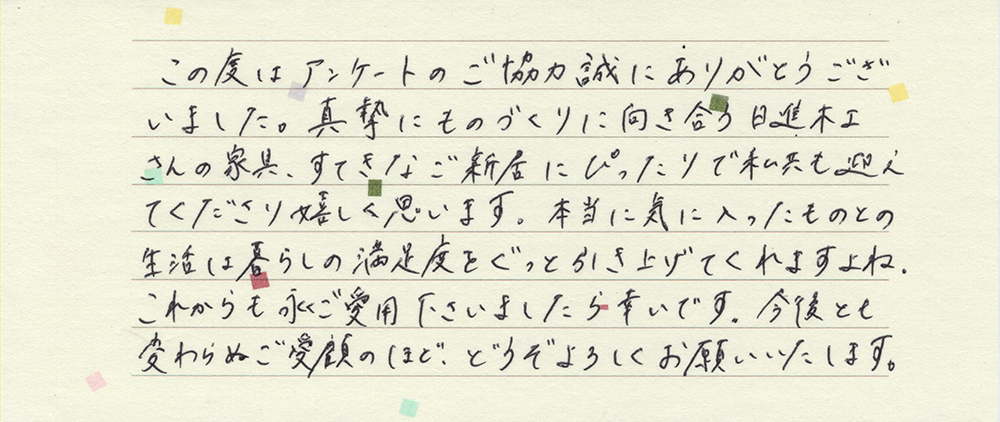 この度はアンケートのご協力誠にありがとうござ
いました。真摯にものづくりに向き合う日進木工
さんの家具、すてきなご新居にぴったりで私共も迎え
てくださり嬉しく思います。本当に気に入ったものとの
生活は暮らしの満足度をぐっと引き上げてくれますよね。
これからも永くご愛用下さいましたら幸いです。今後とも
変わらぬご愛顧のほど、どうぞよろしくお願いいたします。